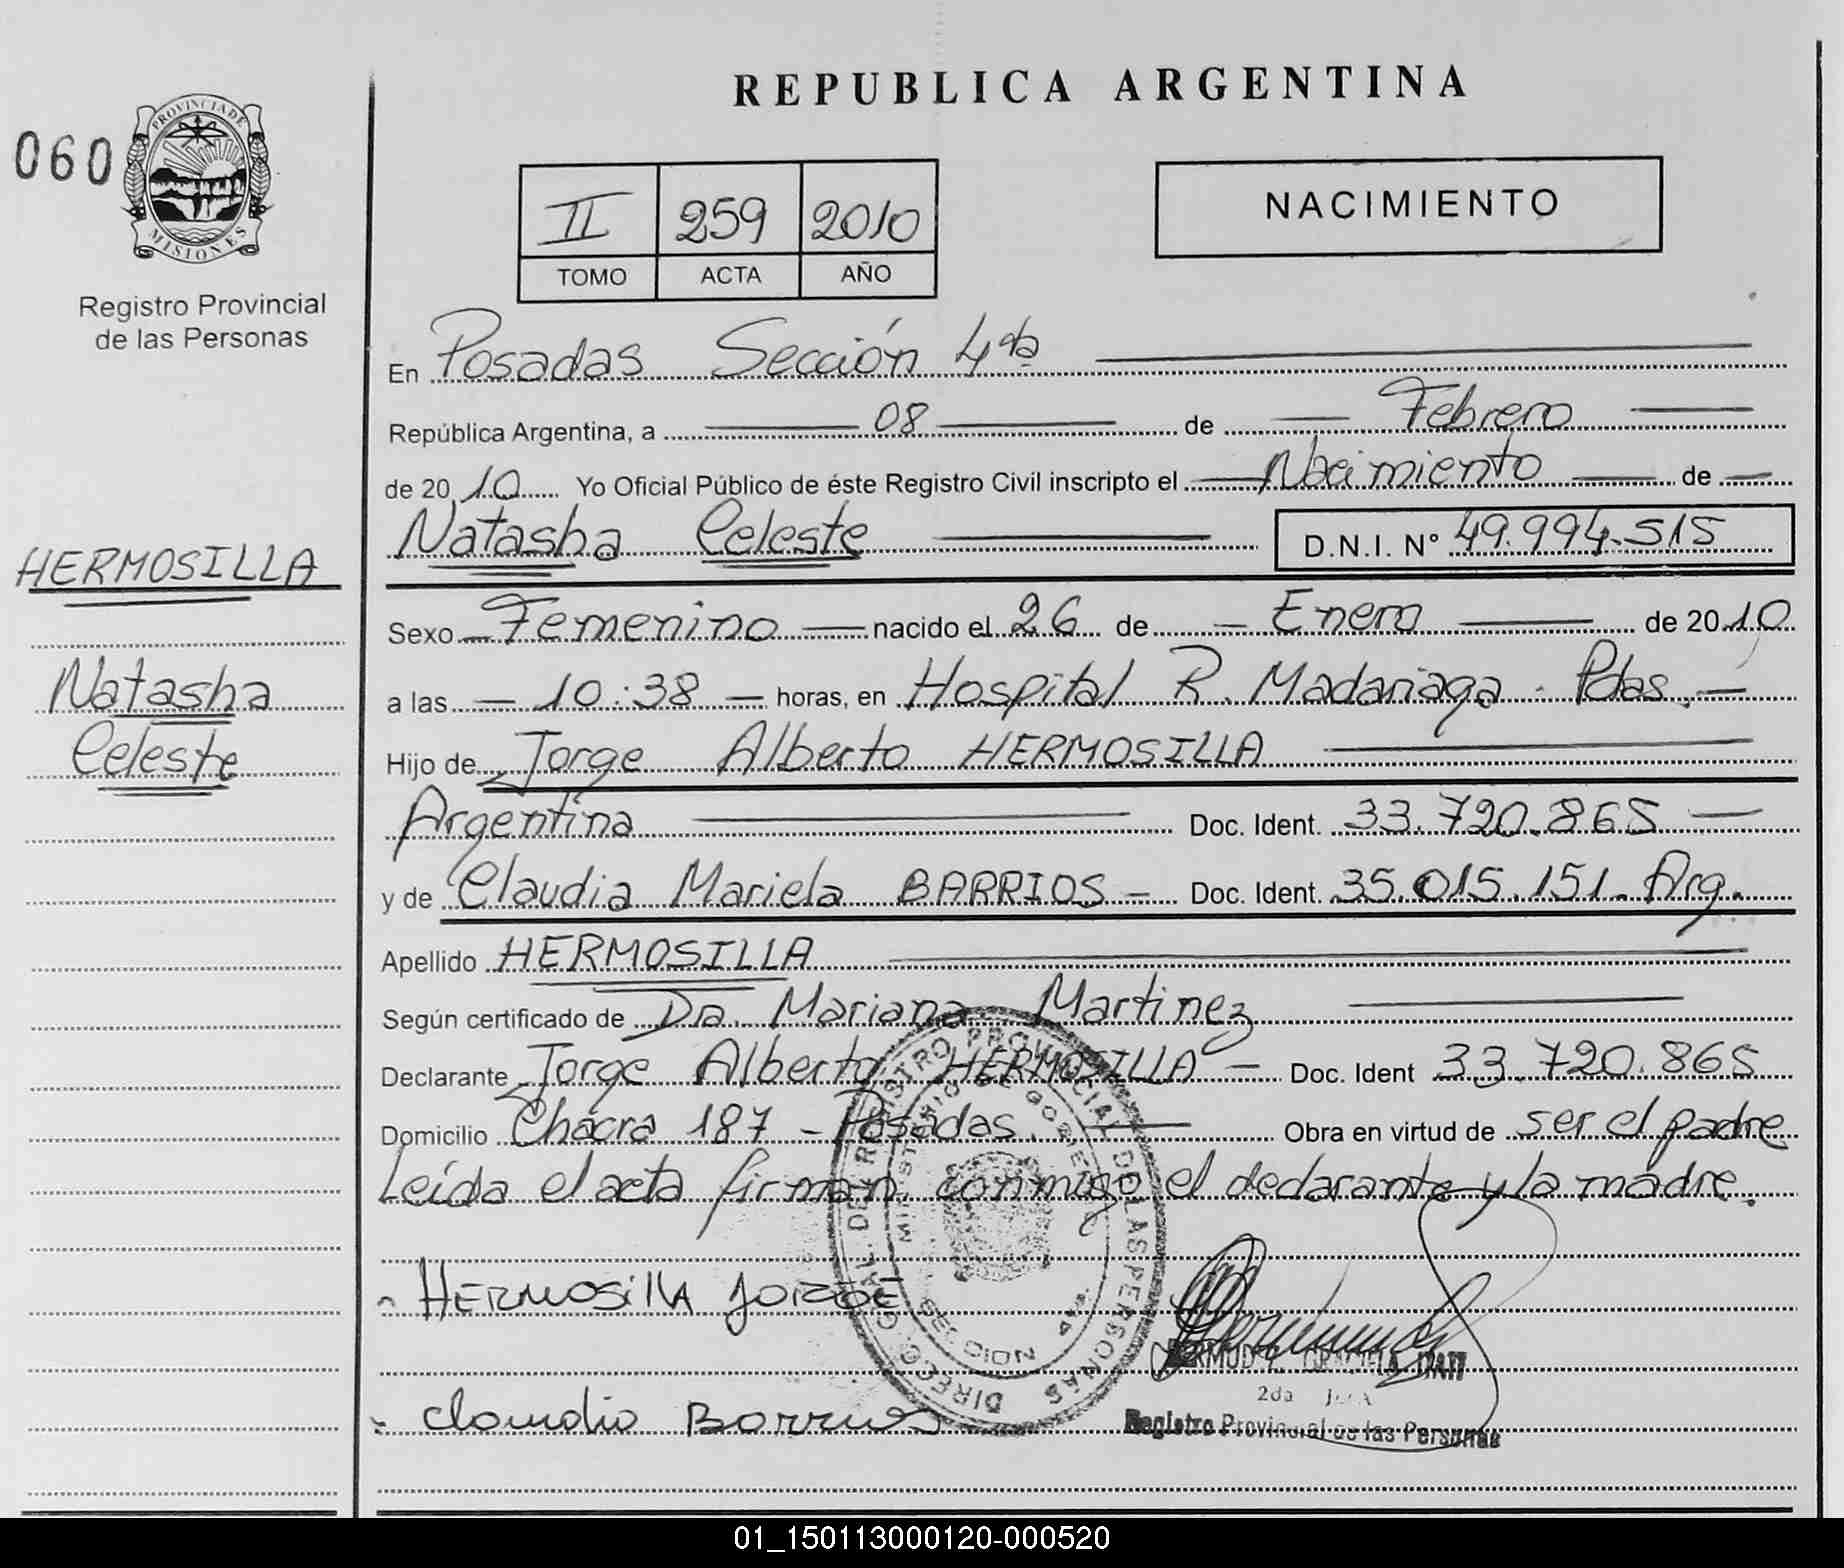 REPUBLICA ARGENTINA
060
PROVINCIA DE
MISIONES
Registro Provincial
de las Personas
II 259 2010
TOMO ACTA AÑO
NACIMIENTO
En Posadas Sección 4ta
República Argentina, a 08 de Febrero
de 2010 Yo Oficial Público de éste Registro Civil inscripto el Nacimiento de
Natasha Celeste D.N.I. Nº 49.994.515
HERMOSILLA
Natasha
Celeste
Sexo Femenino nacido el 26 de Enero de 2010
a las 10:38 horas, en Hospital R. Madariaga. Pdas.
Hijo de Jorge Alberto HERMOSILLA
Argentina Doc. Ident. 33.720.865
y de Claudia Mariela BARRIOS Doc. Ident. 35.015.151. Arg.
Apellido HERMOSILLA
Según certificado de Dra. Mariana Martinez
Declarante Jorge Alberto HERMOSILLA Doc. Ident 33.720.865
Domicilio Chacra 187 - Posadas. Obra en virtud de ser el padre
Leída el acta firman conmigo el declarante y la madre.
DIRECC. GRAL. DEL REGISTRO PROVINCIAL DE LAS PERSONAS
Hermosilla Jorge
GRACIELA ITATI
2da
Registro Provincial de las Personas
Claudia Barrios
01_150113000120-000520